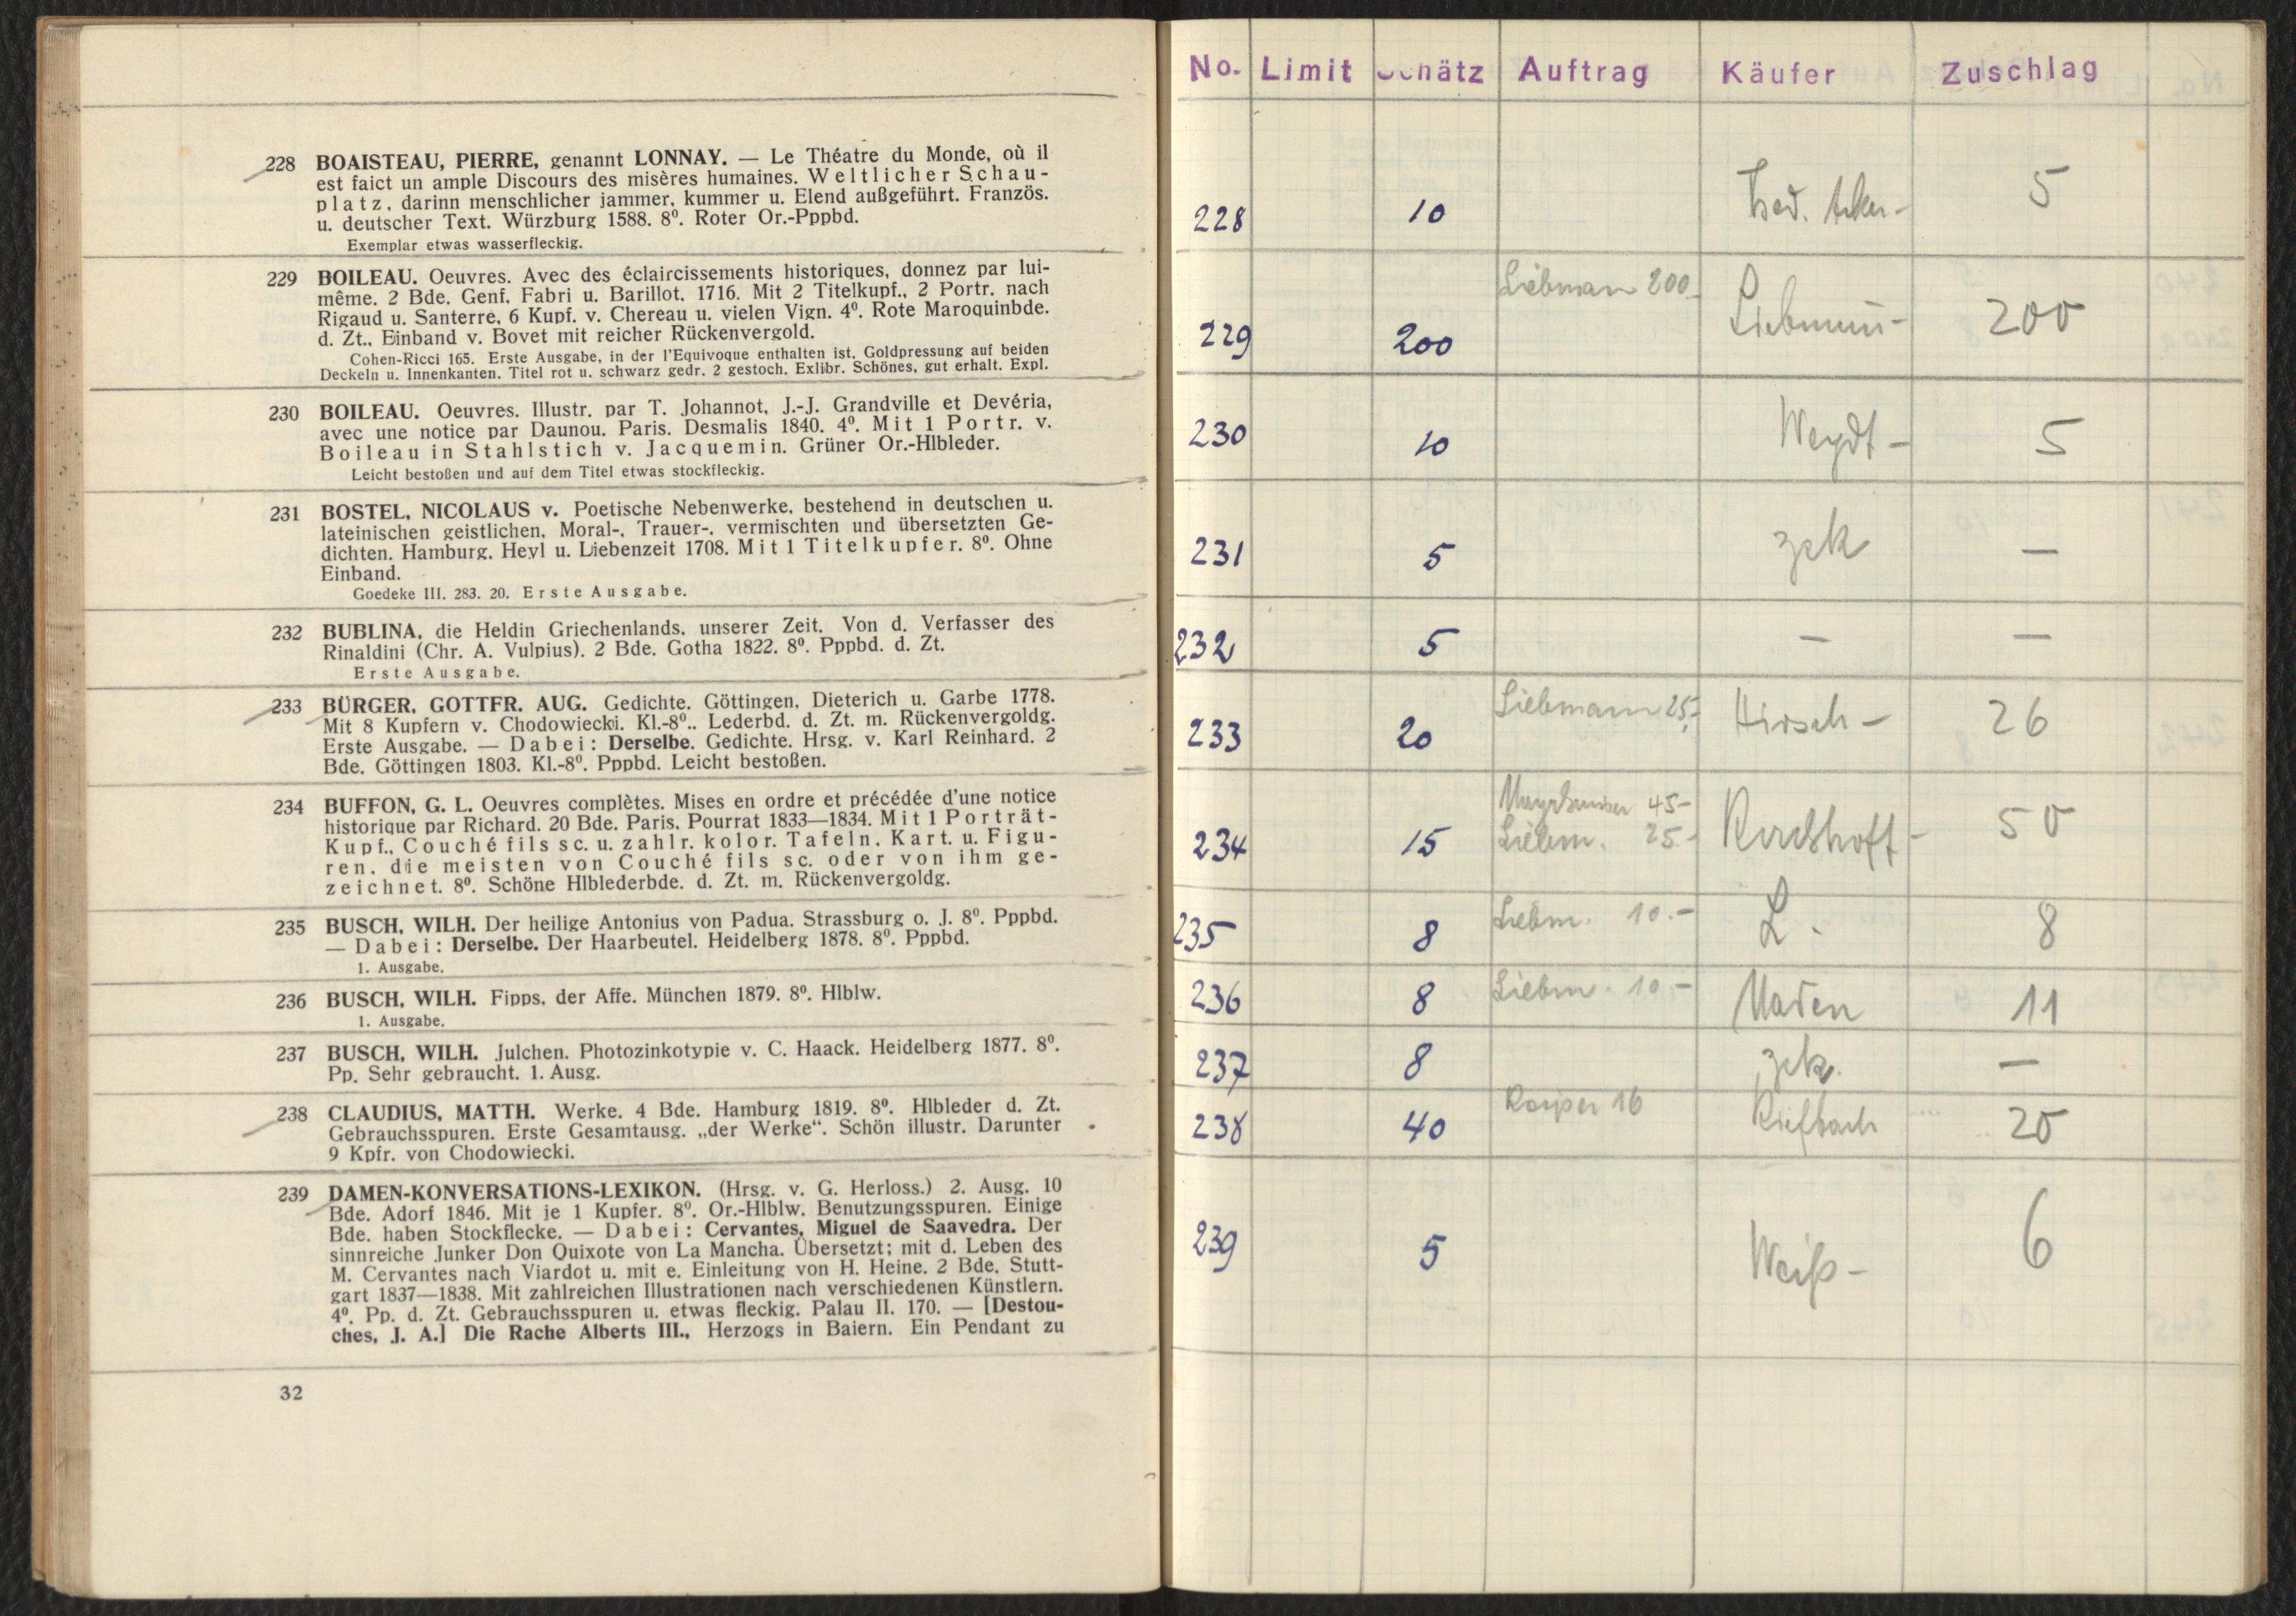 228 BOAISTEAU, PIERRE, genannt LONNAY. — Le Théatre du Monde, où il
est faict un ample Discours des misères humaines. Weltlicher Schau-
platz, darinn menschlicher jammer, kummer u. Elend außgeführt. Französ.
u. deutscher Text. Würzburg 1588. 8⁰. Roter Or.-Pppbd.
Exemplar etwas wasserfleckig.
229 BOILEAU. Oeuvres. Avec des éclaircissements historiques, donnez par lui-
même. 2 Bde. Genf, Fabri u. Barillot, 1716. Mit 2 Titelkupf., 2 Portr. nach
Rigaud u. Santerre, 6 Kupf. v. Chereau u. vielen Vign. 4⁰. Rote Maroquinbde.
d. Zt., Einband v. Bovet mit reicher Rückenvergold.
Cohen-Ricci 165. Erste Ausgabe, in der l'Equivoque enthalten ist. Goldpressung auf beiden
Deckeln u. Innenkanten. Titel rot u. schwarz gedr. 2 gestoch. Exlibr. Schönes, gut erhalt. Expl.
230 BOILEAU. Oeuvres. Illustr. par T. Johannot, J.-J. Grandville et Devéria,
avec une notice par Daunou. Paris. Desmalis 1840. 4⁰. Mit 1 Portr. v.
Boileau in Stahlstich v. Jacquemin. Grüner Or.-Hlbleder.
Leicht bestoßen und auf dem Titel etwas stockfleckig.
231 BOSTEL, NICOLAUS v. Poetische Nebenwerke, bestehend in deutschen u.
lateinischen geistlichen, Moral-, Trauer-, vermischten und übersetzten Ge-
dichten. Hamburg, Heyl u. Liebenzeit 1708. Mit 1 Titelkupfer. 8⁰. Ohne
Einband.
Goedeke III. 283. 20. Erste Ausgabe.
232 BUBLINA, die Heldin Griechenlands, unserer Zeit. Von d. Verfasser des
Rinaldini (Chr. A. Vulpius). 2 Bde. Gotha 1822. 8⁰. Pppbd. d. Zt.
Erste Ausgabe.
233 BÜRGER, GOTTFR. AUG. Gedichte. Göttingen, Dieterich u. Garbe 1778.
Mit 8 Kupfern v. Chodowiecki. Kl.-8⁰.. Lederbd. d. Zt. m. Rückenvergoldg.
Erste Ausgabe. — Dabei: Derselbe. Gedichte. Hrsg. v. Karl Reinhard. 2
Bde. Göttingen 1803. Kl.-8⁰. Pppbd. Leicht bestoßen.
234 BUFFON, G. L. Oeuvres complètes. Mises en ordre et précédée d'une notice
historique par Richard. 20 Bde. Paris. Pourrat 1833—1834. Mit 1 Porträt-
Kupf., Couché fils sc. u. zahlr. kolor. Tafeln, Kart. u. Figu-
ren, die meisten von Couché fils sc. oder von ihm ge-
zeichnet. 8⁰. Schöne Hlblederbde. d. Zt. m. Rückenvergoldg.
235 BUSCH, WILH. Der heilige Antonius von Padua. Strassburg o. J. 8⁰. Pppbd.
— Dabei: Derselbe. Der Haarbeutel. Heidelberg 1878. 8⁰. Pppbd.
1. Ausgabe.
236 BUSCH, WILH. Fipps, der Affe. München 1879. 8⁰. Hlblw.
1. Ausgabe.
237 BUSCH, WILH. Julchen. Photozinkotypie v. C. Haack. Heidelberg 1877. 8⁰.
Pp. Sehr gebraucht. 1. Ausg.
238 CLAUDIUS, MATTH. Werke. 4 Bde. Hamburg 1819. 8⁰. Hlbleder d. Zt.
Gebrauchsspuren. Erste Gesamtausg. „der Werke“. Schön illustr. Darunter
9 Kpfr. von Chodowiecki.
239 DAMEN-KONVERSATIONS-LEXIKON. (Hrsg. v. G. Herloss.) 2. Ausg. 10
Bde. Adorf 1846. Mit je 1 Kupfer. 8⁰. Or.-Hlblw. Benutzungsspuren. Einige
Bde. haben Stockflecke. — Dabei: Cervantes, Miguel de Saavedra. Der
sinnreiche Junker Don Quixote von La Mancha. Übersetzt; mit d. Leben des
M. Cervantes nach Viardot u. mit e. Einleitung von H. Heine. 2 Bde. Stutt-
gart 1837—1838. Mit zahlreichen Illustrationen nach verschiedenen Künstlern.
4⁰. Pp. d. Zt. Gebrauchsspuren u. etwas fleckig. Palau II. 170. — [Destou-
ches, J. A.] Die Rache Alberts III., Herzogs in Baiern. Ein Pendant zu
32
No. Limit Schätz Auftrag Käufer Zuschlag
228 10 5
229 200 Liebmann 200.- Liebmann - 200
230 10 Weydt - 5
231 5 zck —
232 5 — —
233 20 Liebmann 25.- Hirsch - 26
234 15 45.- Liebm. 25.- Kirchhoff - 50
235 8 Liebm. 10.- L. 8
236 8 Liebm. 10.- Maden 11
237 8 zck. —
238 40 16 20
239 5 Weiß - 6